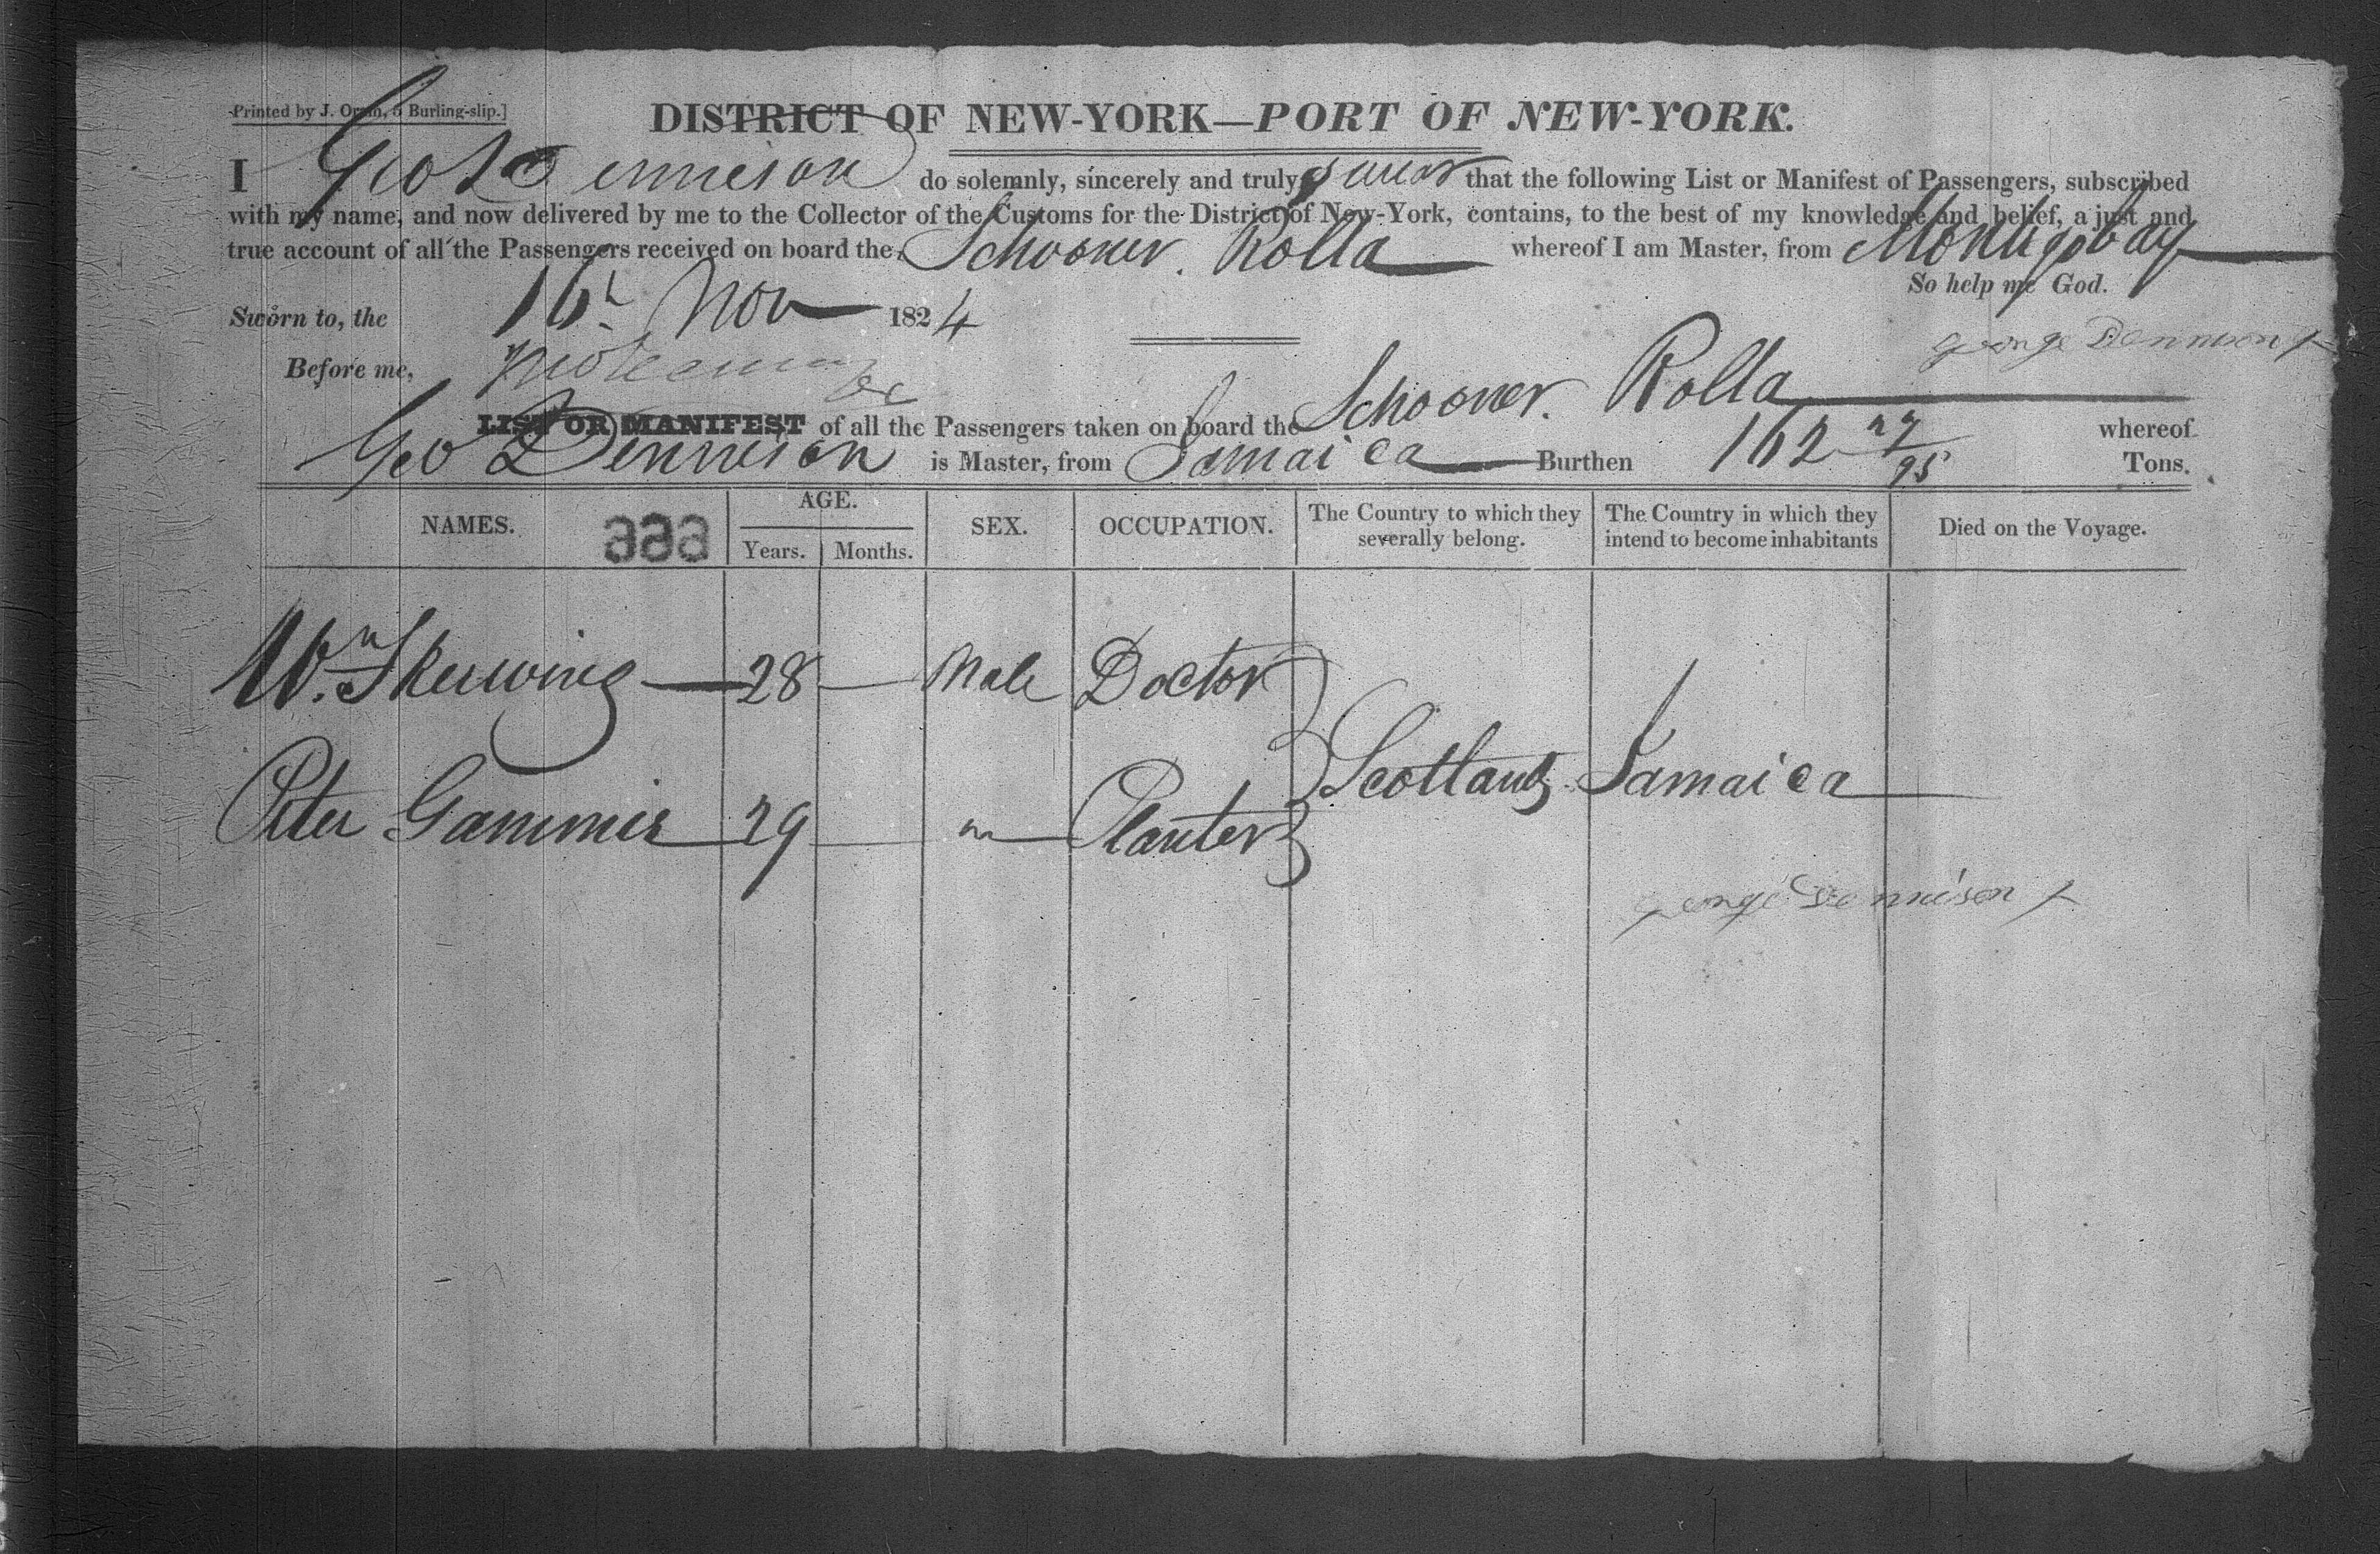 Printed by J. Oram, 5 Burling-slip.]
DISTRICT OF NEW-YORK—PORT OF NEW-YORK.
I Geo Dennison do solemnly, sincerely and truly swear that the following List or Manifest of Passengers, subscribed
with my name, and now delivered by me to the Collector of the Customs for the District of New-York, contains, to the best of my knowledge and belief, a just and
true account of all the Passengers received on board the Schooner Rolla whereof I am Master, from Montego bay
So help me God.
Sworn to, the 16h Nov 1824
george Dennison
Before me,
LIST OR MANIFEST of all the Passengers taken on board the Schooner. Rolla whereof
Geo Dennison is Master, from Jamaica Burthen 162 27/95 Tons.
NAMES. AGE. Years. Months. SEX. OCCUPATION. The Country to which they severally belong. The Country in which they intend to become inhabitants Died on the Voyage.
Wm. Skerwing 28 Male Doctor
Scotland Jamaica
Peter Gammie 29 " Planter
george Dennison